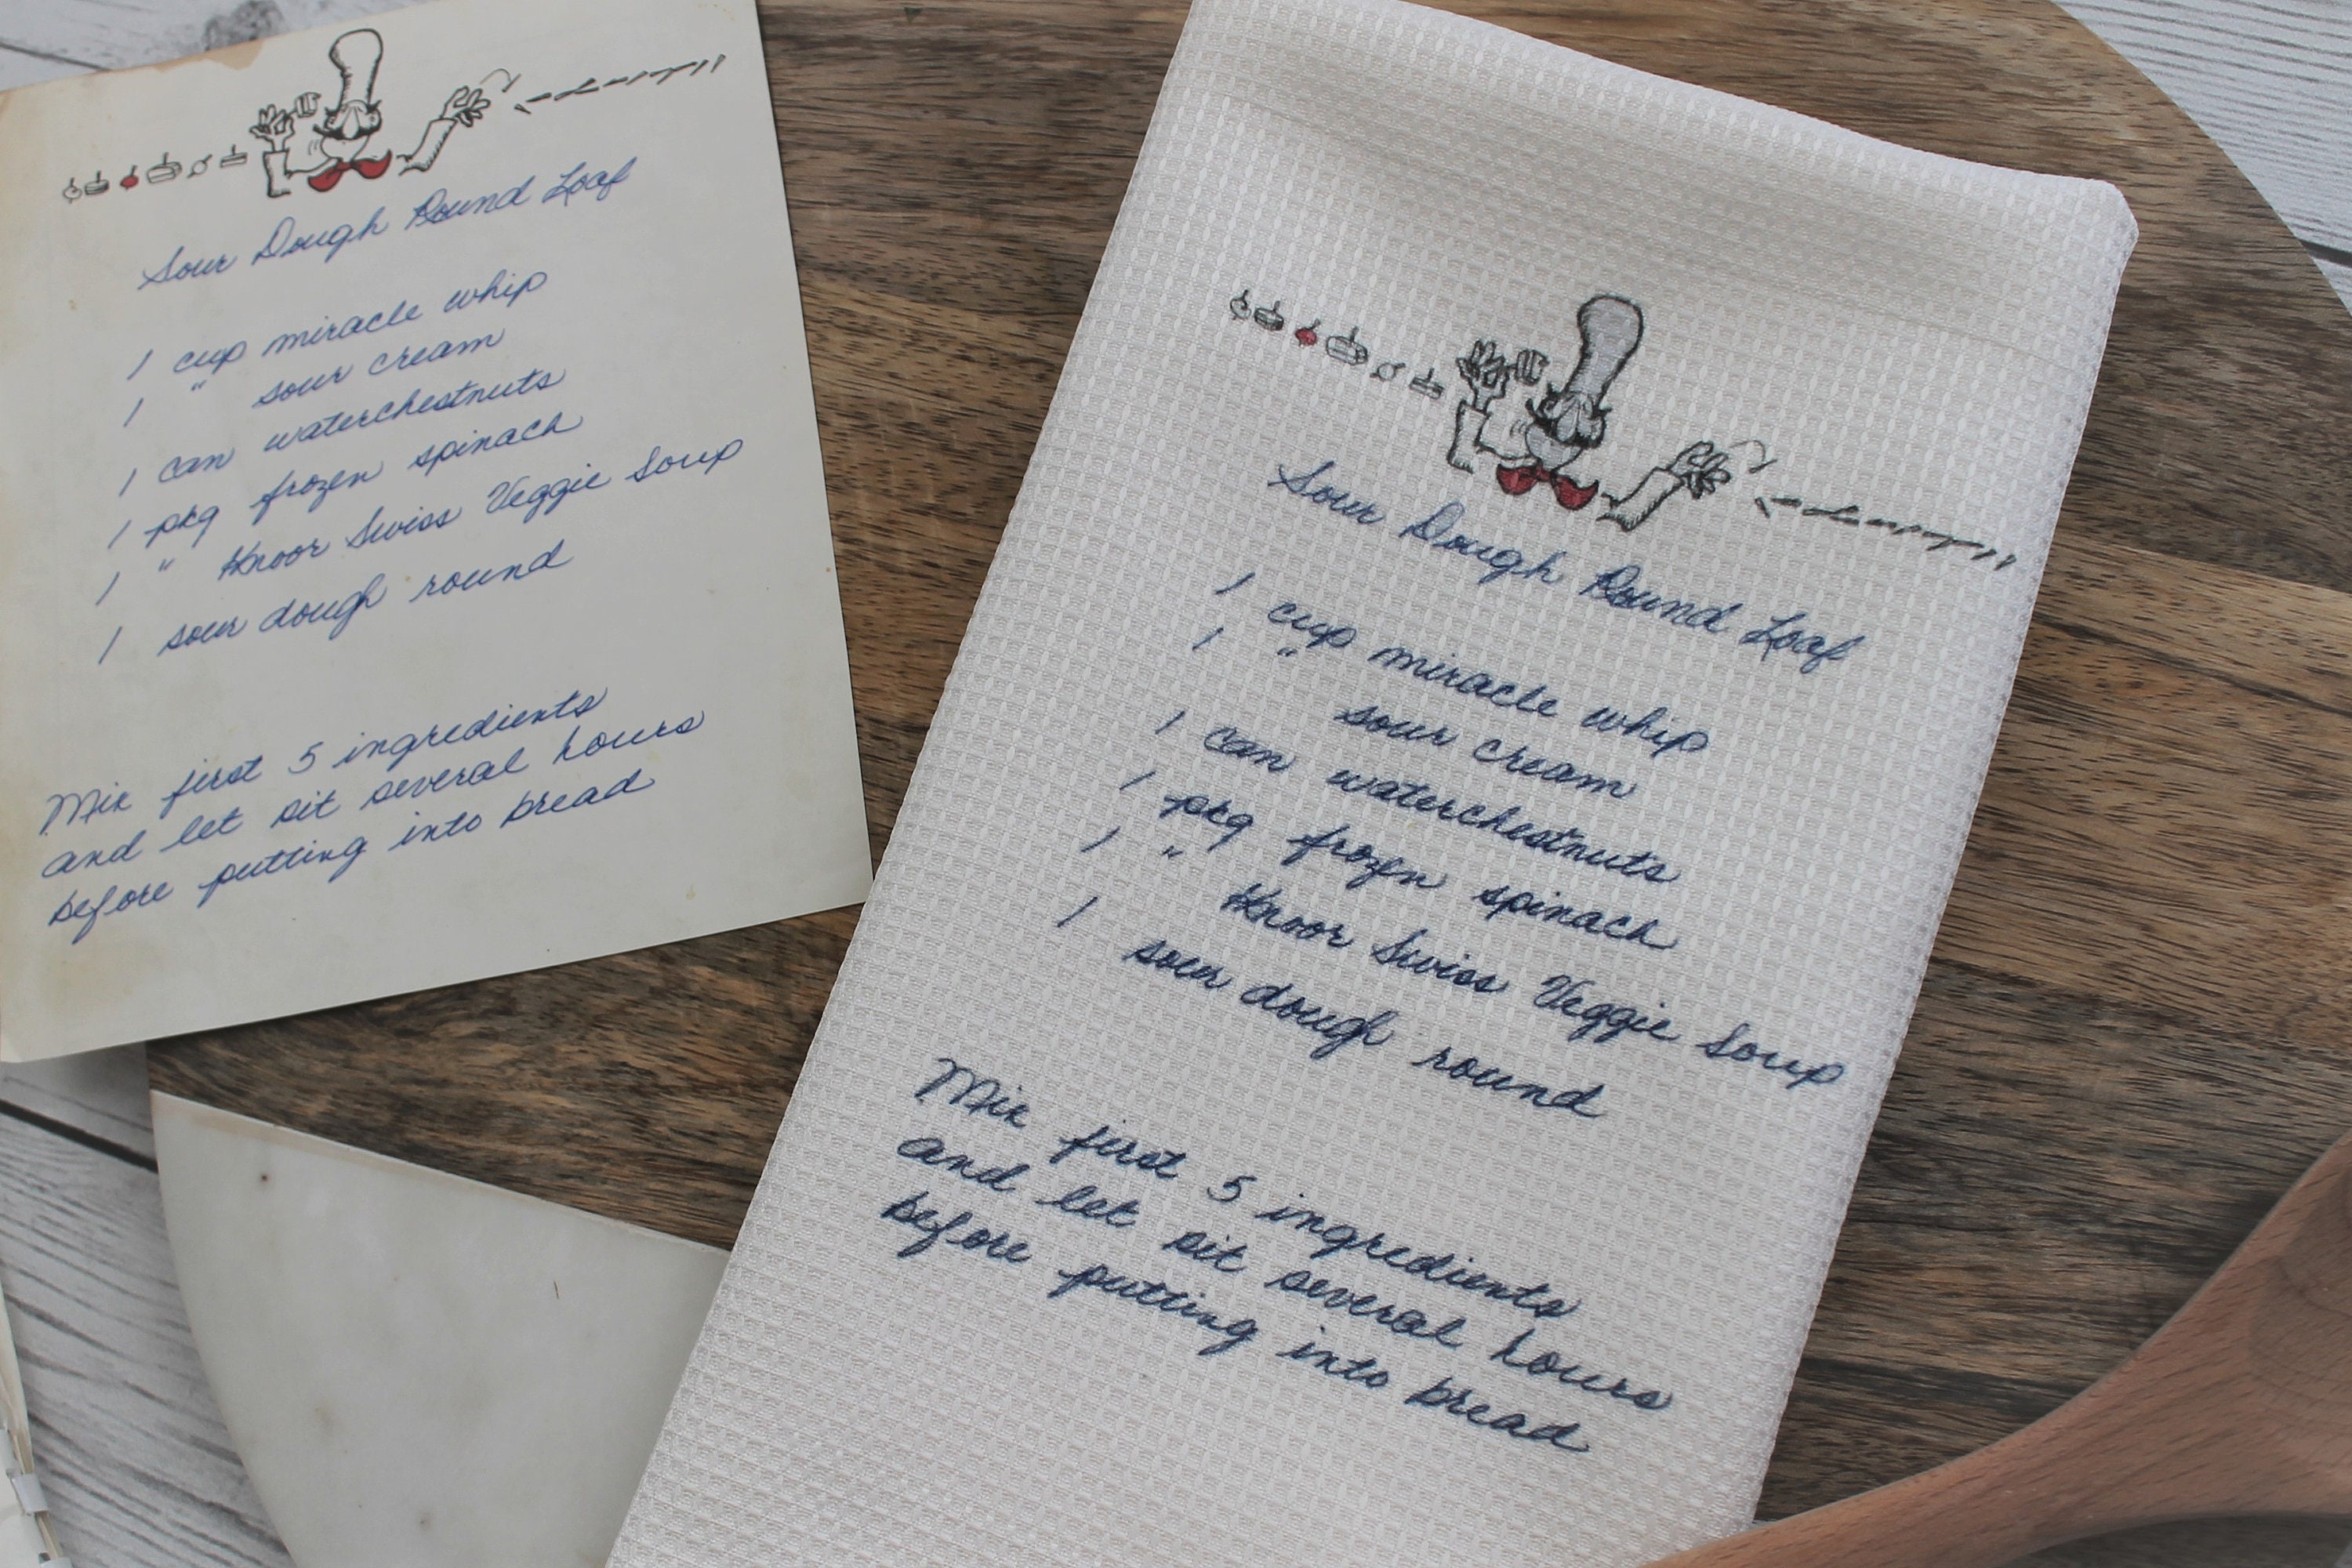 Sour Dough Round Loaf
1 cup miracle whip
1 " sour cream
1 can waterchestnuts
1 pkg frozen spinach
1 " Knoor Swiss Veggie Soup
1 sour dough round
Mix first 5 ingredients
and let sit several hours
before putting into bread
Sour Dough Round Loaf
1 cup miracle whip
1 " sour cream
1 can waterchestnuts
1 pkg frozen spinach
1 " Knoor Swiss Veggie Soup
1 sour dough round
Mix first 5 ingredients
and let sit several hours
before putting into bread